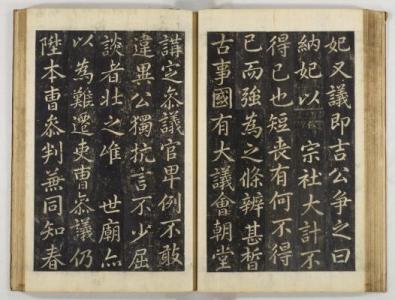 妃又議即吉公爭之曰
納妃以 宗社大計不
得已也短丧有何不得
已而強為之條辨甚晳
古事國有大議會朝堂
講定叅議官卑例不敢
違異公獨抗言不少屈
談者壮之唯 世廟亦
以為難遷吏曹叅議仍
陞本曹叅判兼同知春